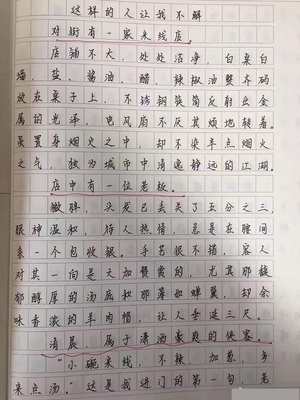 这样的人让我不解
对街有一家米线店。
店铺不大，处处洁净，白桌白
墙，盐、酱油、醋、辣椒油整齐码
放在桌子上，不锈钢筷筒反射出金
属的光泽，电风扇不厌其烦地转着。
虽置身烟火之中，却不染半点烟火
之气，独为城市中清逸静远的江湖。
店中有一位老板。
微胖，头发已丢失了五分之三，
眼神温和，待人热情，总是在腰间
系一个包收银。手艺很不错，客人
对其一向是大加赞赏的，尤其那馥
郁醇厚的汤底和那薄如蝉翼，却余
味香浓的羊肉帽，让人垂涎三尺。
清晨，属于潇洒豪爽的侠客。
“小碗米线，不辣，加葱，多
来点汤。”这是我进门的第一句，老